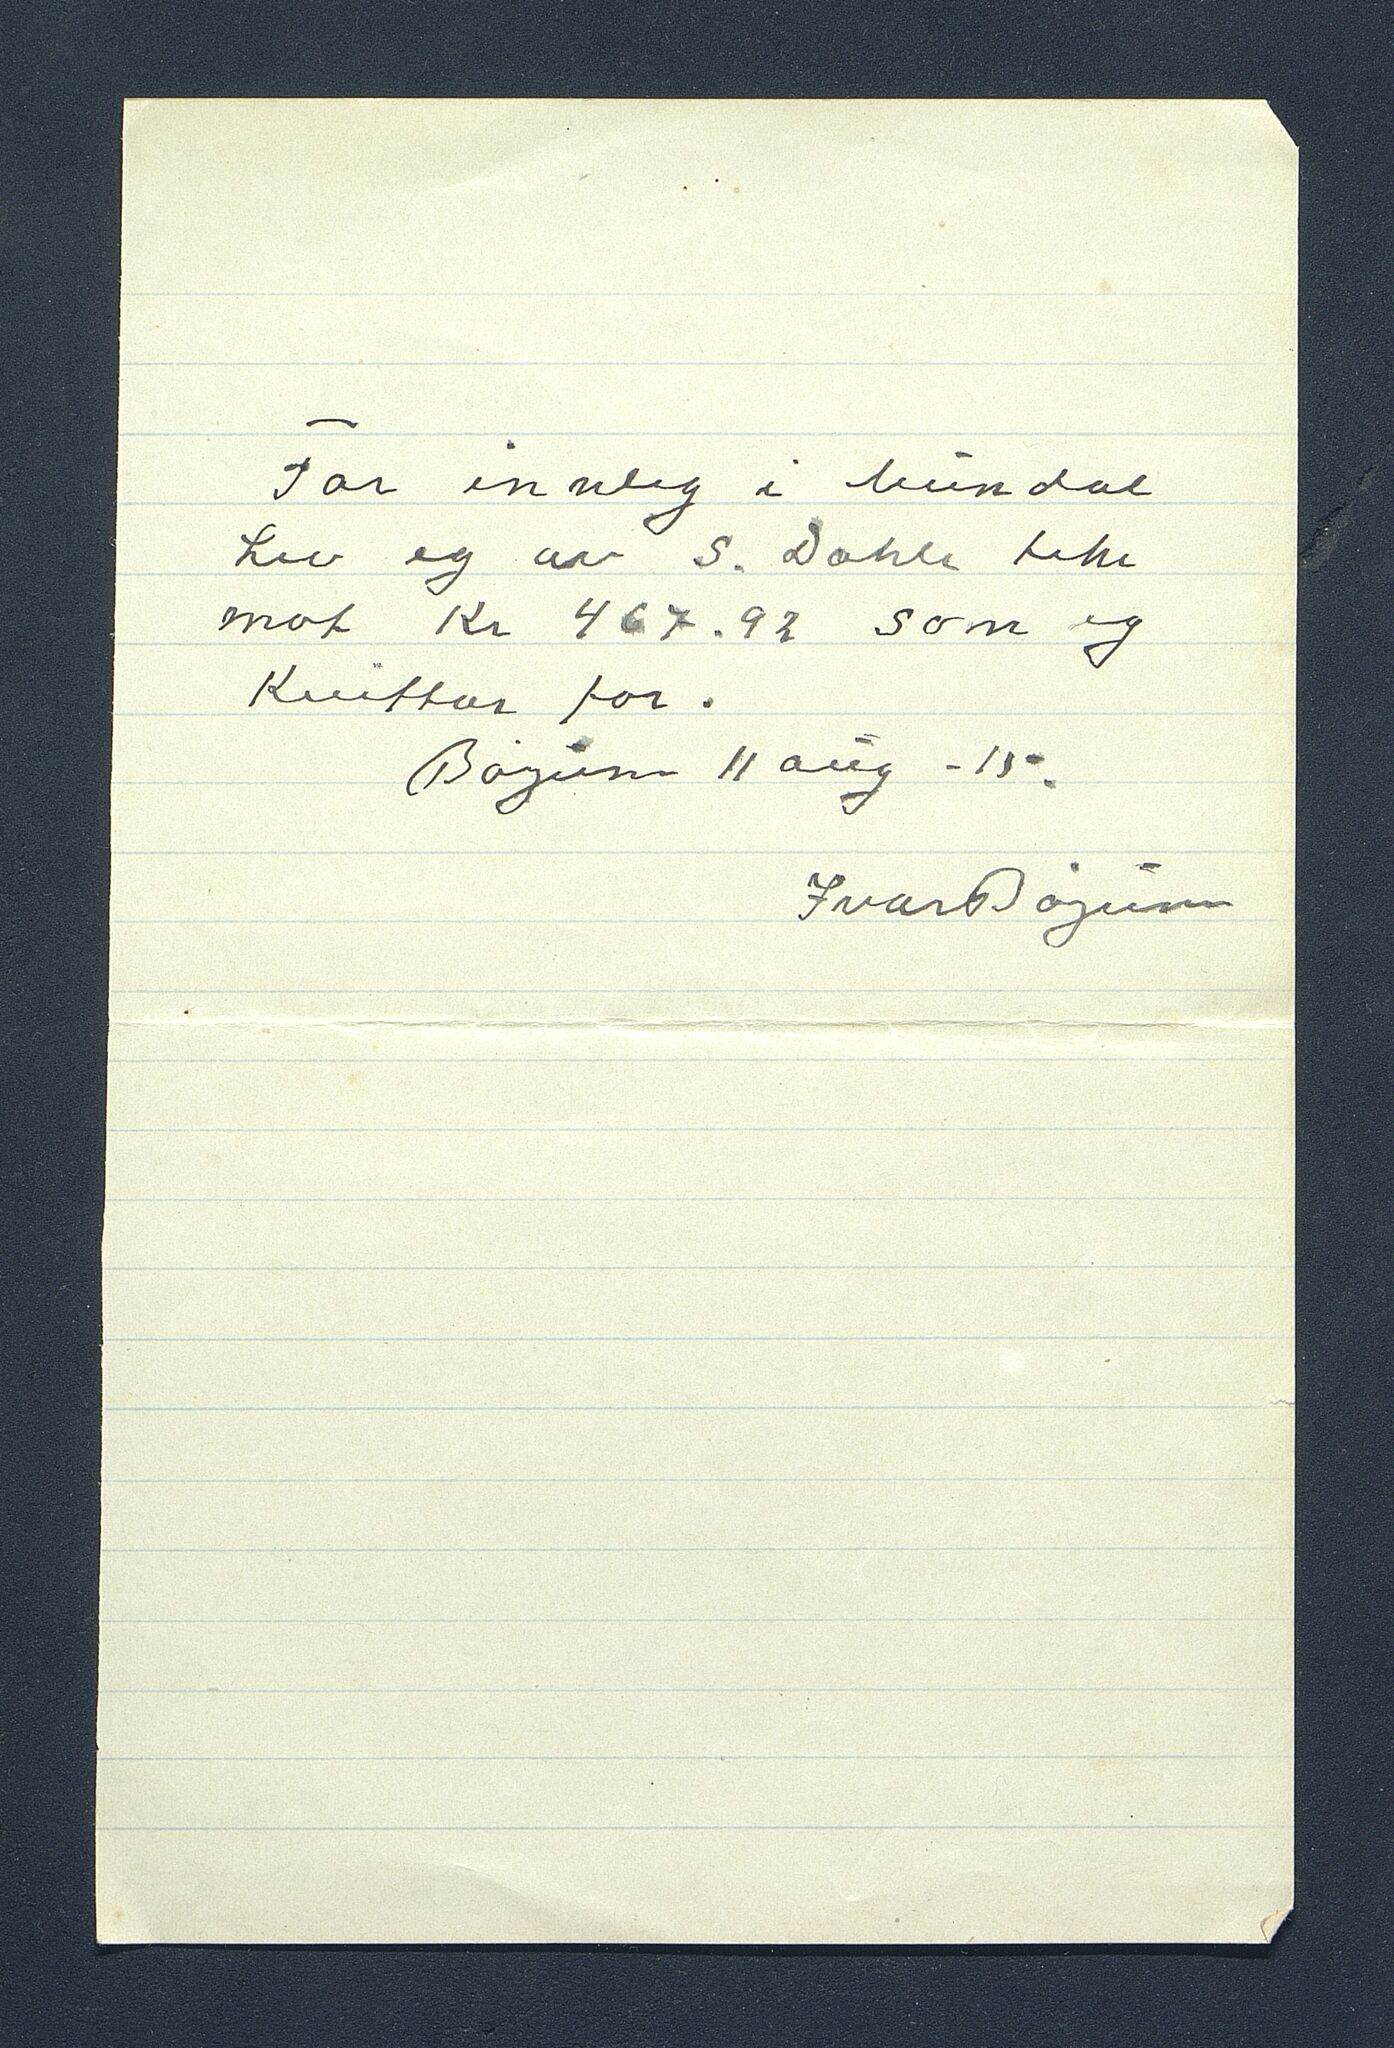 For innleg i Mundal
hev eg av S. Dahle teke
mot Kr 467.92 som eg
Kvittar for.
Bøyum 11 aug - 15.
Ivar Bøyum